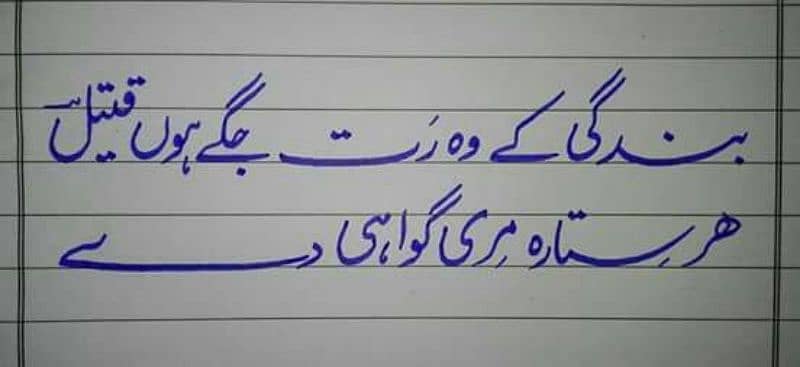 بندگی کے وہ رَت جگے ہوں قتیلؔ
ھر سِتارہ مِری گواہی دے